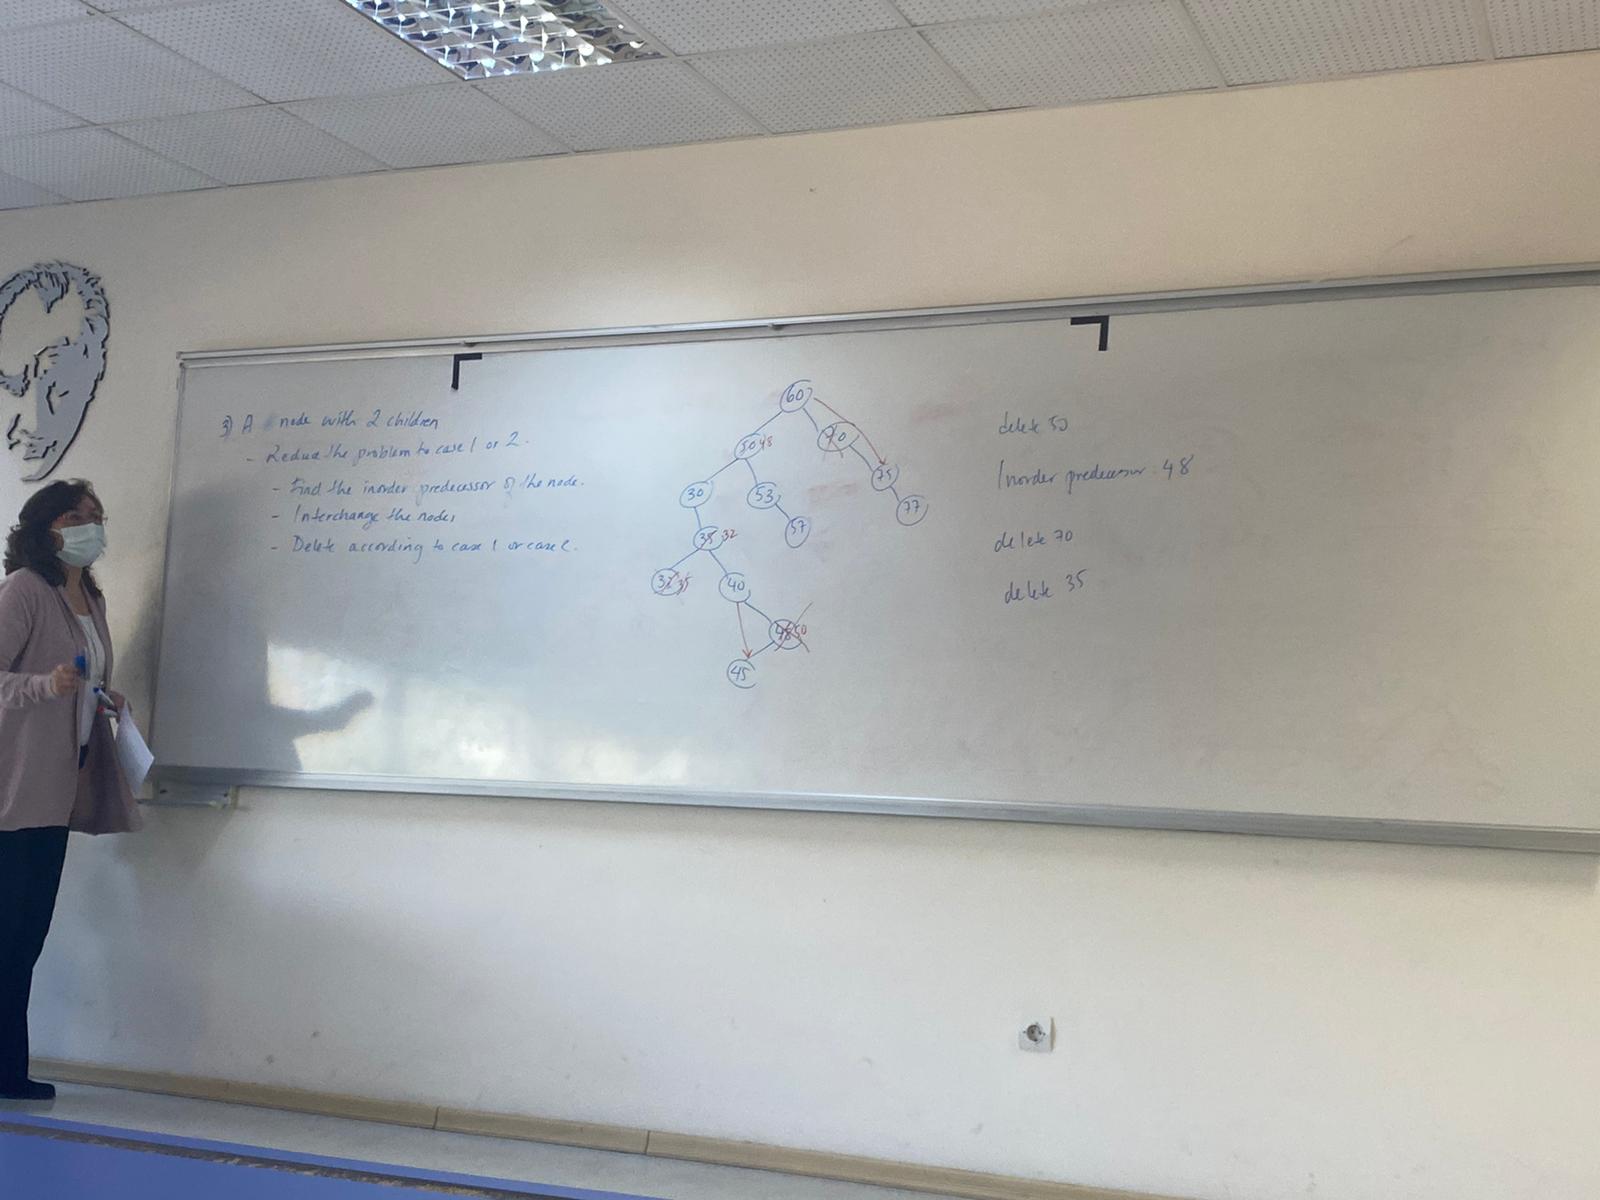 3) A node with 2 children
- Reduce the problem to case 1 or 2.
- Find the inorder predecessor of the node.
- Interchange the nodes
- Delete according to case 1 or case 2.
60
50 48
70
30
53
75
77
35 32
57
32 35
40
48 50
45
delete 50
Inorder predecessor 48
delete 70
delete 35